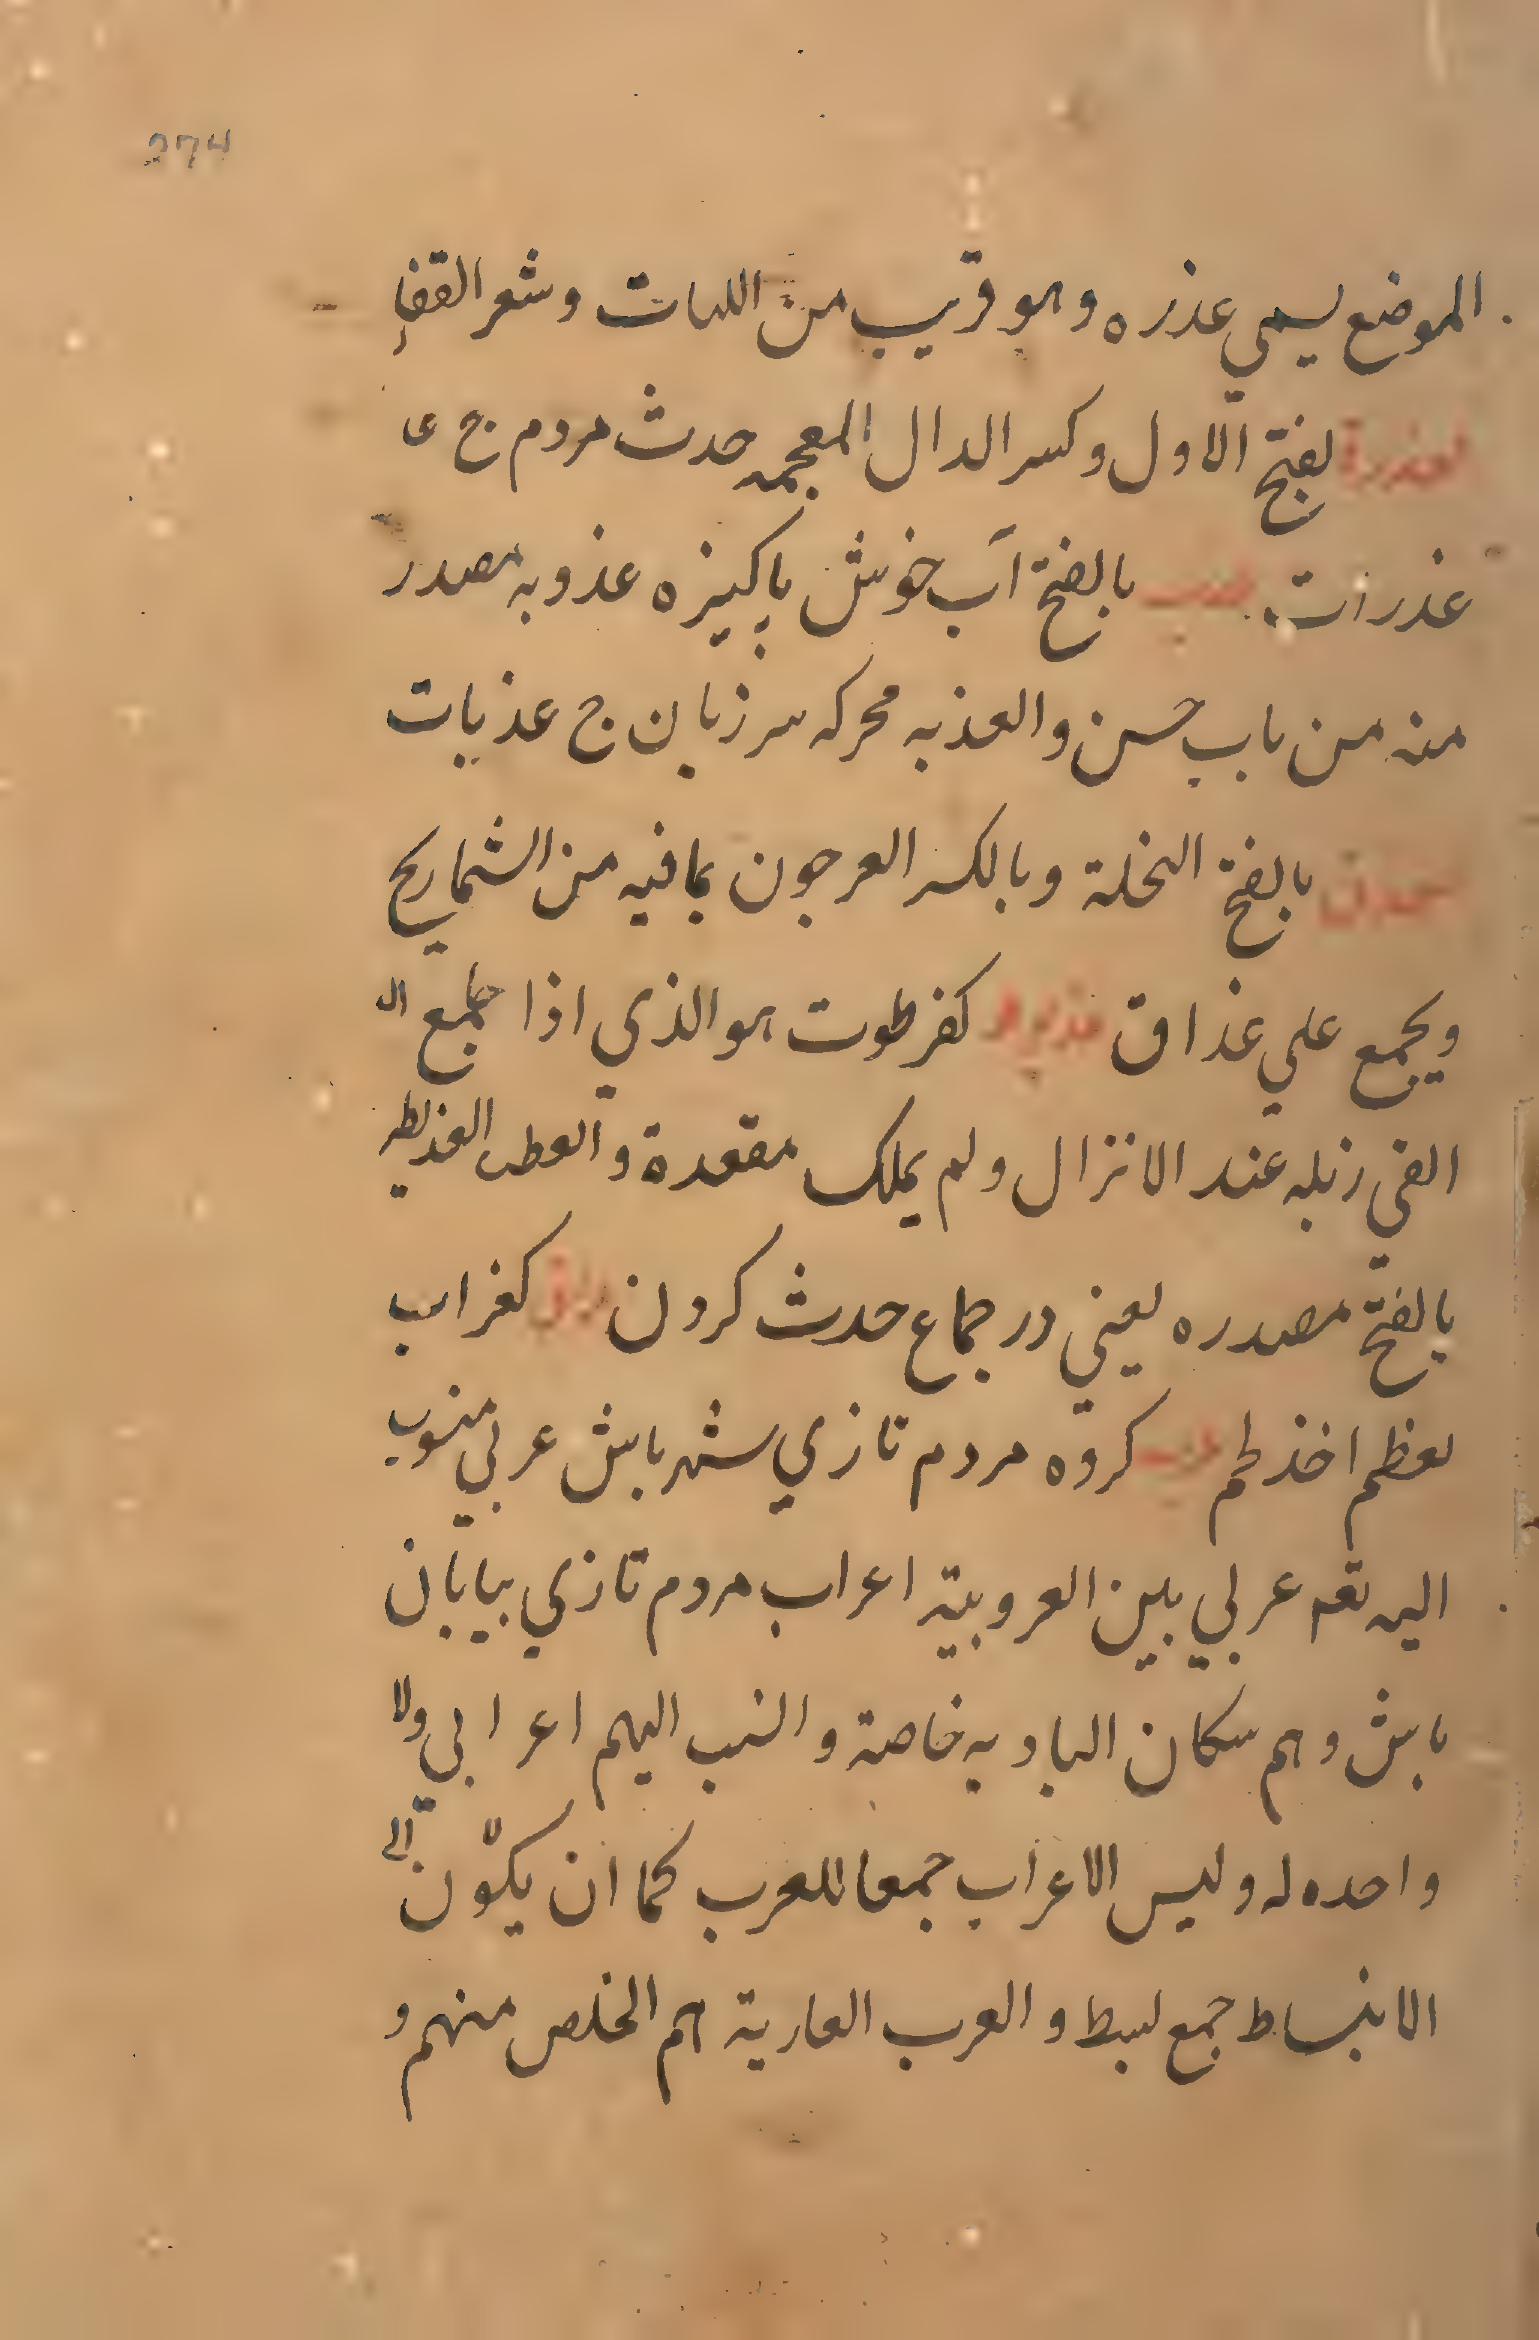 274
الموضع يسمي عذره وهو قريب من اللهات وشعر القفا
العذرة بفتح الاول وكسر الدال المعجمه حدث مردم ج ى
عذرات بالفتح آب خوش پاكيزه عذوبه مصدر
منه من باب حسن والعذبه محركه سر زبان ج عذبات
بالفتح النخلة وبالكسر العرجون بما فيه من الشماريح
ويجمع علي عذاق كفرطوت هو الذي اذا جامع
القي زبله عند الانزال ولم يملك مقعدة و العذيطه
بالفتح مصدره يعني در جماع حدث كرون كغراب
لعظم اخذ لحم عرب كروه مردم تازي شهر باش عربي منسوب
اليه تقه عربي بين العروبية اعراب مردم تازي بيابان
باش وهم سكان الباديه خاصة والنسب اليهم اعرابي ولا
واحده له وليس الاعراب جمعا للعرب كما ان يكون
الانبساط جمع لسبط و العرب العاربة هم الخلص منهم و